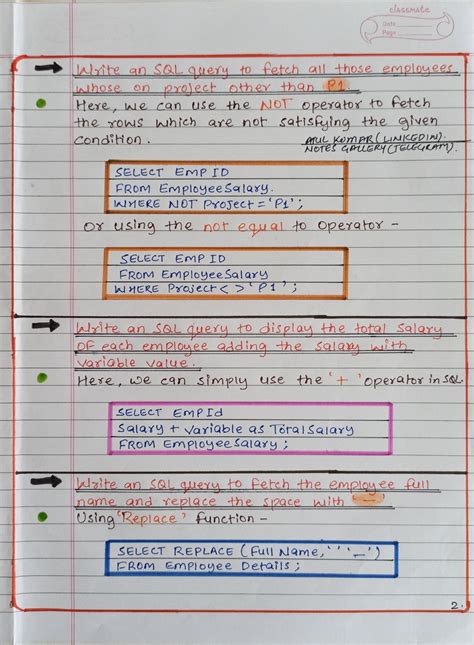 classmate
Date
Page
Write an SQL query to fetch all those employees
whose on project other than P1.
Here, we can use the NOT operator to fetch
the rows which are not satisfying the given
condition.
ATUL KUMAR (LINKEDIN).
NOTES GALLERY (TELEGRAM).
SELECT EMP ID
FROM EmployeeSalary.
WHERE NOT Project = 'P1';
Or using the not equal to Operator -
SELECT EMP ID
FROM EmployeeSalary
WHERE Project < > 'P1';
Write an SQL query to display the total salary
OF each employee adding the salary with
variable value.
Here, we can simply use the '+' operator in SQL
SELECT EmpId
Salary + Variable as TotalSalary
FROM EmployeeSalary;
Write an SQL query to fetch the employee full
name and replace the space with _
Using 'Replace' function -
SELECT REPLACE (Full Name, ' ' '_')
FROM Employee Details;
2.